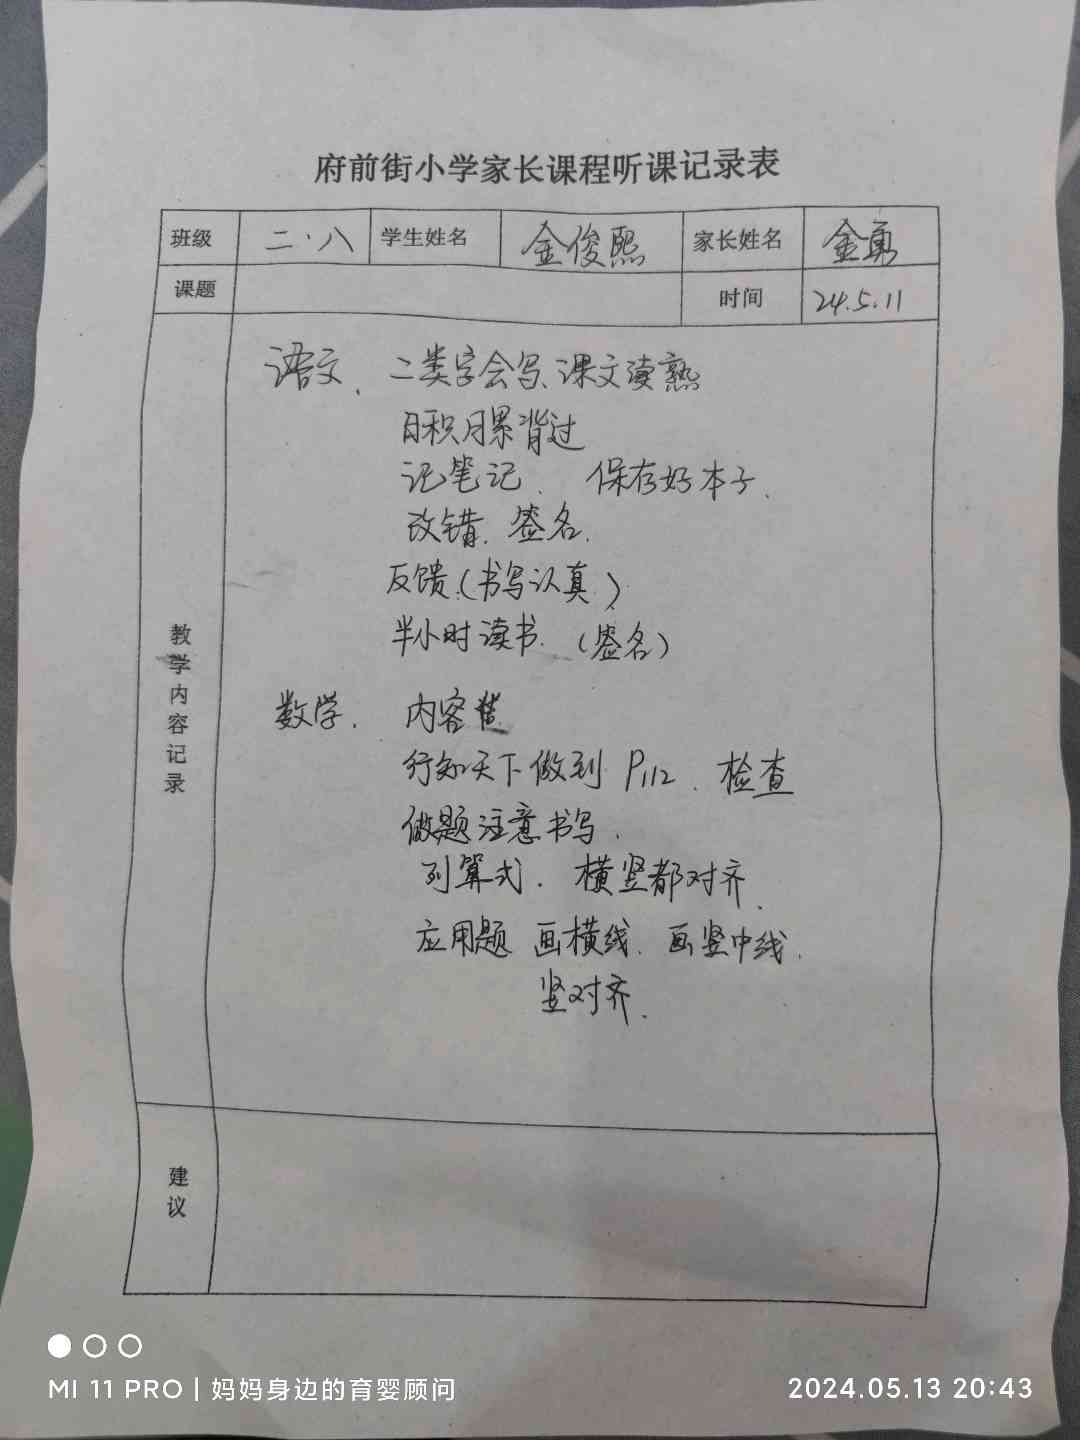 府前街小学家长课程听课记录表
班级 二·八 学生姓名 金俊熙 家长姓名 金勇
课题 时间 24.5.11
教学内容记录
语文、二类字会写、课文读熟
日积月累背过
记笔记、保存好本子、
改错、签名、
反馈(书写认真、)
半小时读书、(签名)
数学、内容
行知天下做到P112、检查
做题注意书写、
列算式、横竖都对齐、
应用题 画横线、画竖中线、
竖对齐、
建议
MI 11 PRO | 妈妈身边的育婴顾问
2024.05.13 20:43